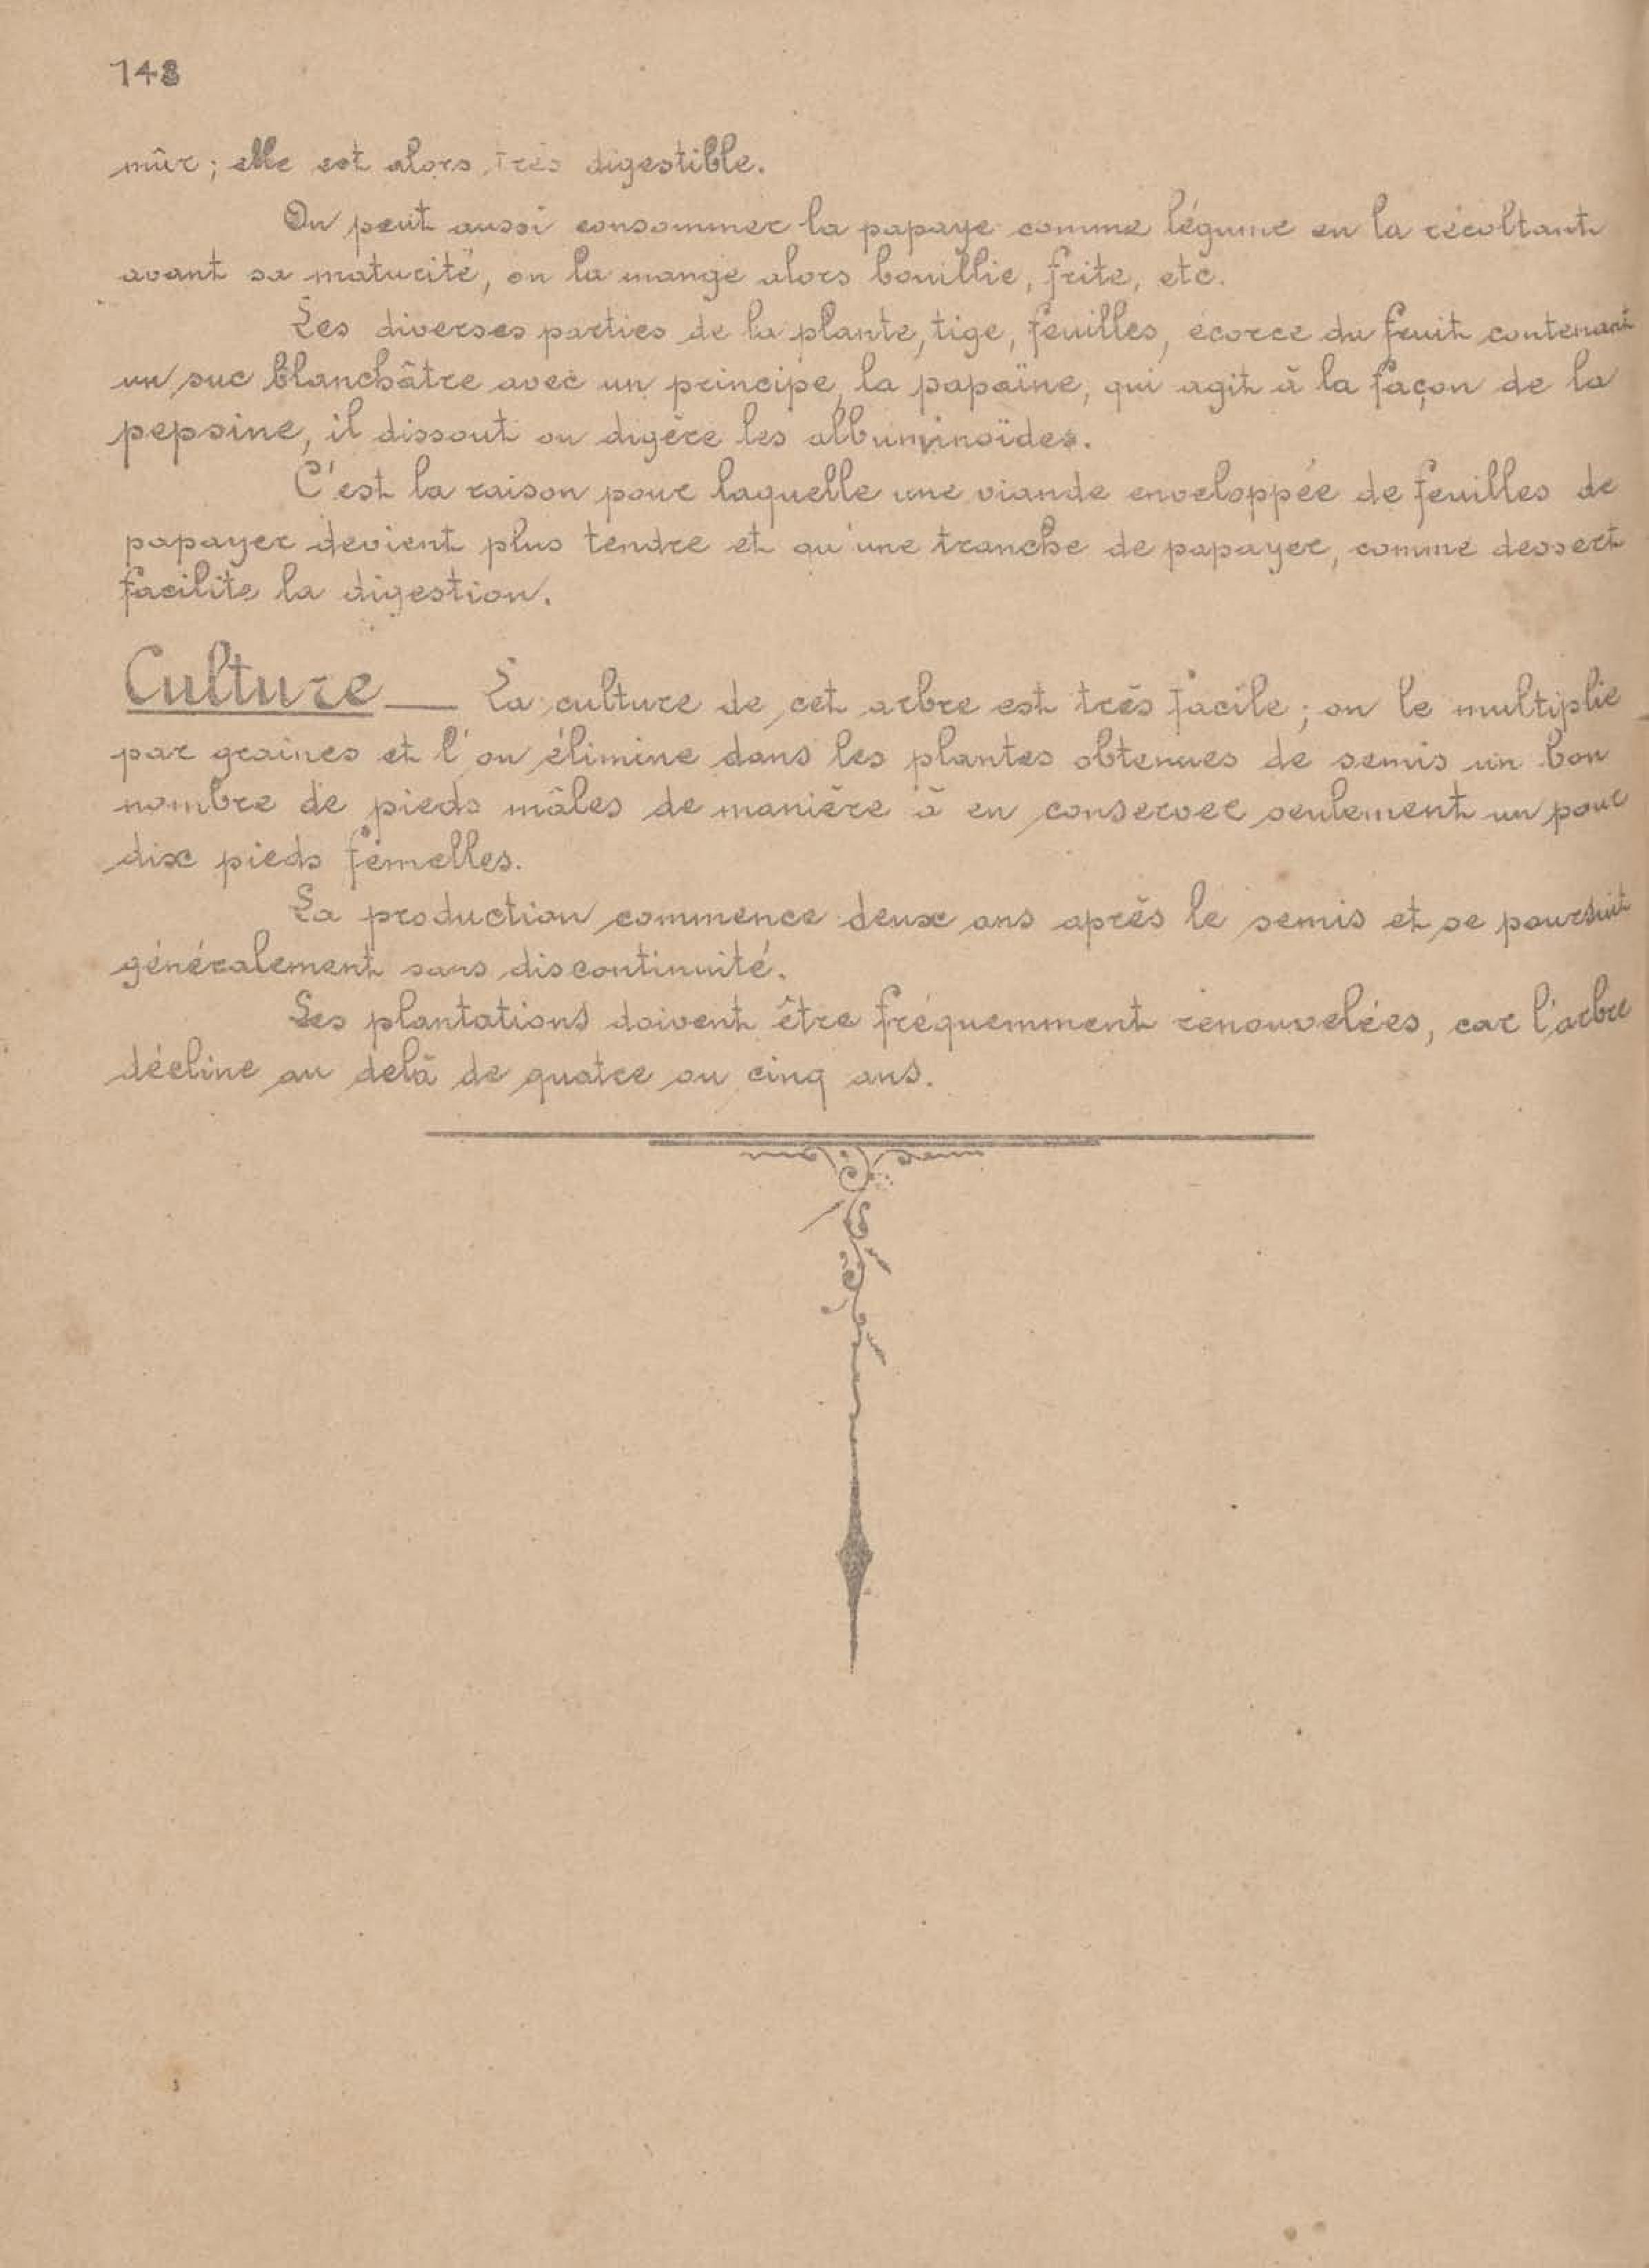 148
mûr; elle est alors très digestible.
On peut aussi consommer la papaye comme légume en la récoltant
avant sa maturité, on la mange alors bouillie, frite, etc.
Les diverses parties de la plante, tige, feuilles, écorce du fruit contenant
un suc blanchâtre avec un principe, la papaïne, qui agit à la façon de la
pepsine, il dissout ou digère les albuminoïdes.
C'est la raison pour laquelle une viande enveloppée de feuilles de
papayer devient plus tendre et qu'une tranche de papayer, comme dessert
facilite la digestion.
Culture — La culture de cet arbre est très facile; on le multiplie
par graines et l'on élimine dans les plantes obtenues de semis un bon
nombre de pieds mâles de manière à en conserver seulement un pour
dix pieds femelles.
La production commence deux ans après le semis et se poursuit
généralement sans discontinuité.
Les plantations doivent être fréquemment renouvelées, car l'arbre
décline au delà de quatre ou cinq ans.